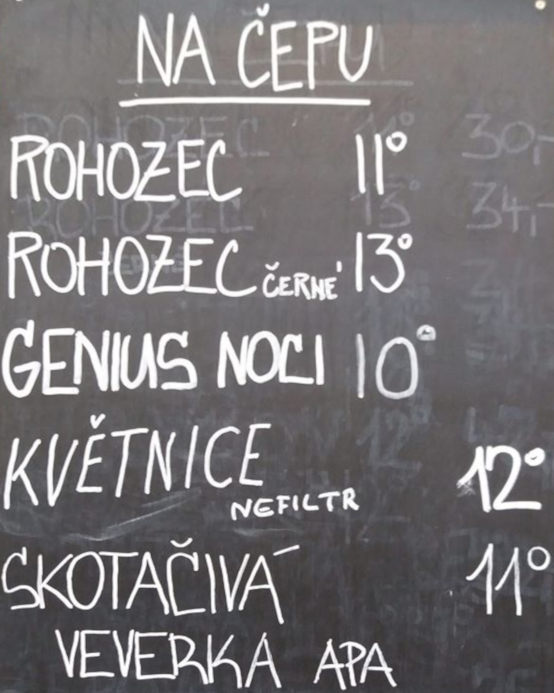 NA ČEPU
ROHOZEC 11°
ROHOZEC ČERNÉ 13°
GENIUS NOCI 10°
KVĚTNICE NEFILTR 12°
SKOTAČIVÁ 11°
VEVERKA APA